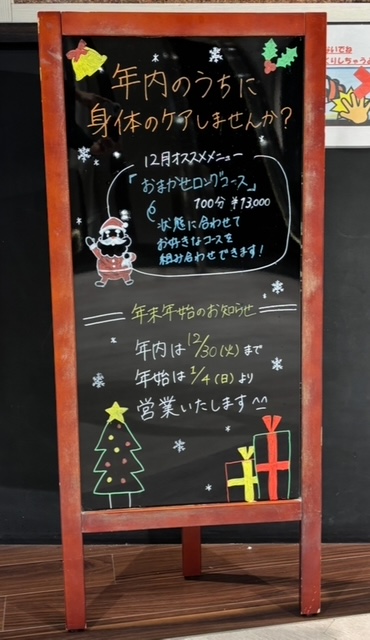 年内のうちに
身体のケアしませんか？
12月オススメメニュー
「おまかせロングコース」
100分 ¥13,000
状態に合わせて
お好きなコースを
組み合わせできます！
年末年始のお知らせ
年内は12/30(火)まで
年始は1/4(日)より
営業いたします^^